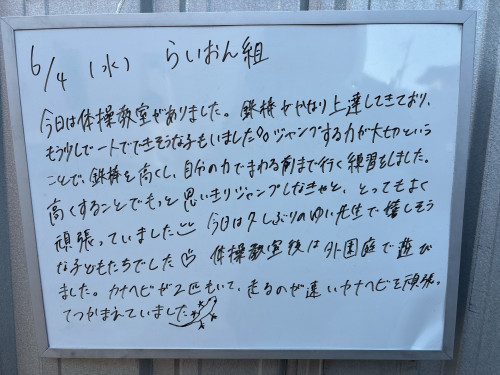 6/4 (水) らいおん組
今日は体操教室がありました。鉄棒もかなり上達してきており、
もう少しで一人でできそうな子もいました。ジャンプする力が大切という
ことで、鉄棒を高くし、自分の力でまわる前まで行く練習をしました。
高くすることでもっと思いきりジャンプしなきゃと、とってもよく
頑張っていました 今日は久しぶりのゆい先生で嬉しそう
な子どもたちでした 体操教室後は外園庭で遊び
ました。カナヘビが2匹もいて、走るのが速いカナヘビを頑張っ
てつかまえていました